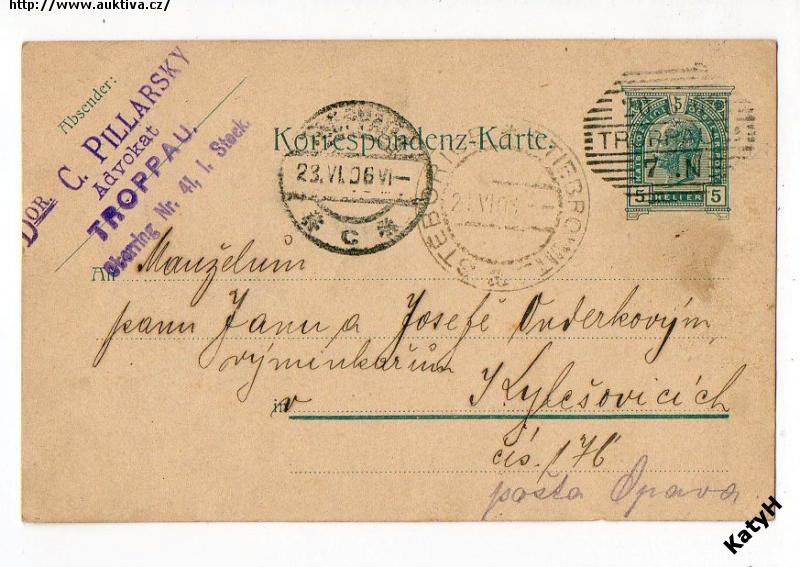 http://www.auktiva.cz/
Absender:
Dor. C. PILLARSKY
Advokat
TROPPAU.
Oberring Nr. 41, I. Stock.
Korrespondenz-Karte.
23.VI.06 VI
* C *
TROPPAU
7 . N
5
5 HELLER 5
An Manželum
panu Janu a Josefě Onderkovým,
výminkářům
in v Kylešovicích
čís. 176
pošta Opava
KatyH